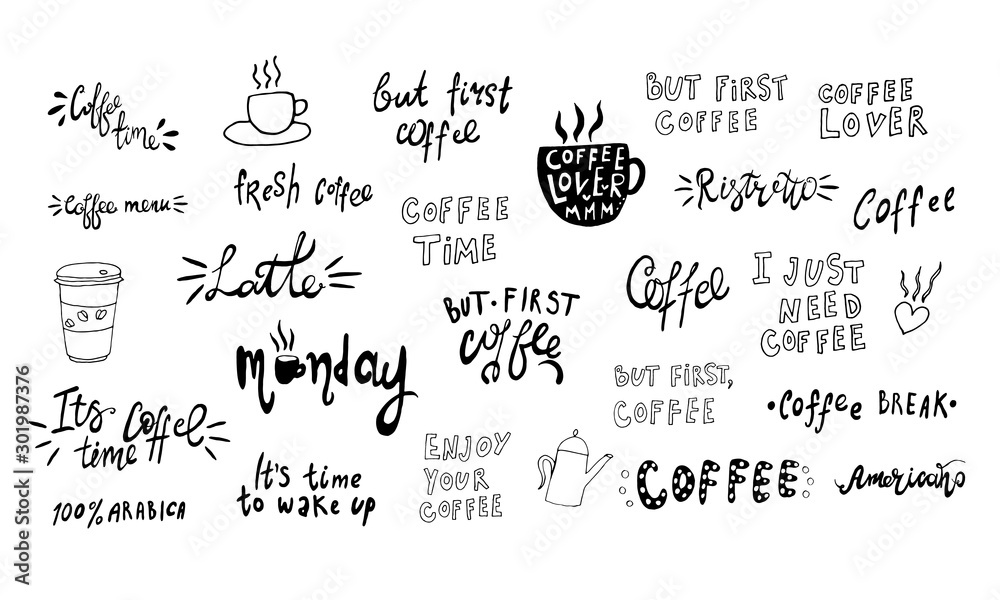 Coffee
time
but first
coffee
BUT FIRST
COFFEE
COFFEE
LOVER
COFFEE
LOVER
MMM.
Coffee menu
fresh coffee
COFFEE
TIME
Ristretto
Coffee
Latte
BUT·FIRST
coffee
Coffee
I JUST
NEED
COFFEE
monday
BUT FIRST,
COFFEE
•Coffee BREAK•
Its Coffee
time
It's time
to wake up
ENJOY
YOUR
COFFEE
COFFEE
Americano
100% ARABICA
Adobe Stock | #301987376
Adobe Stock